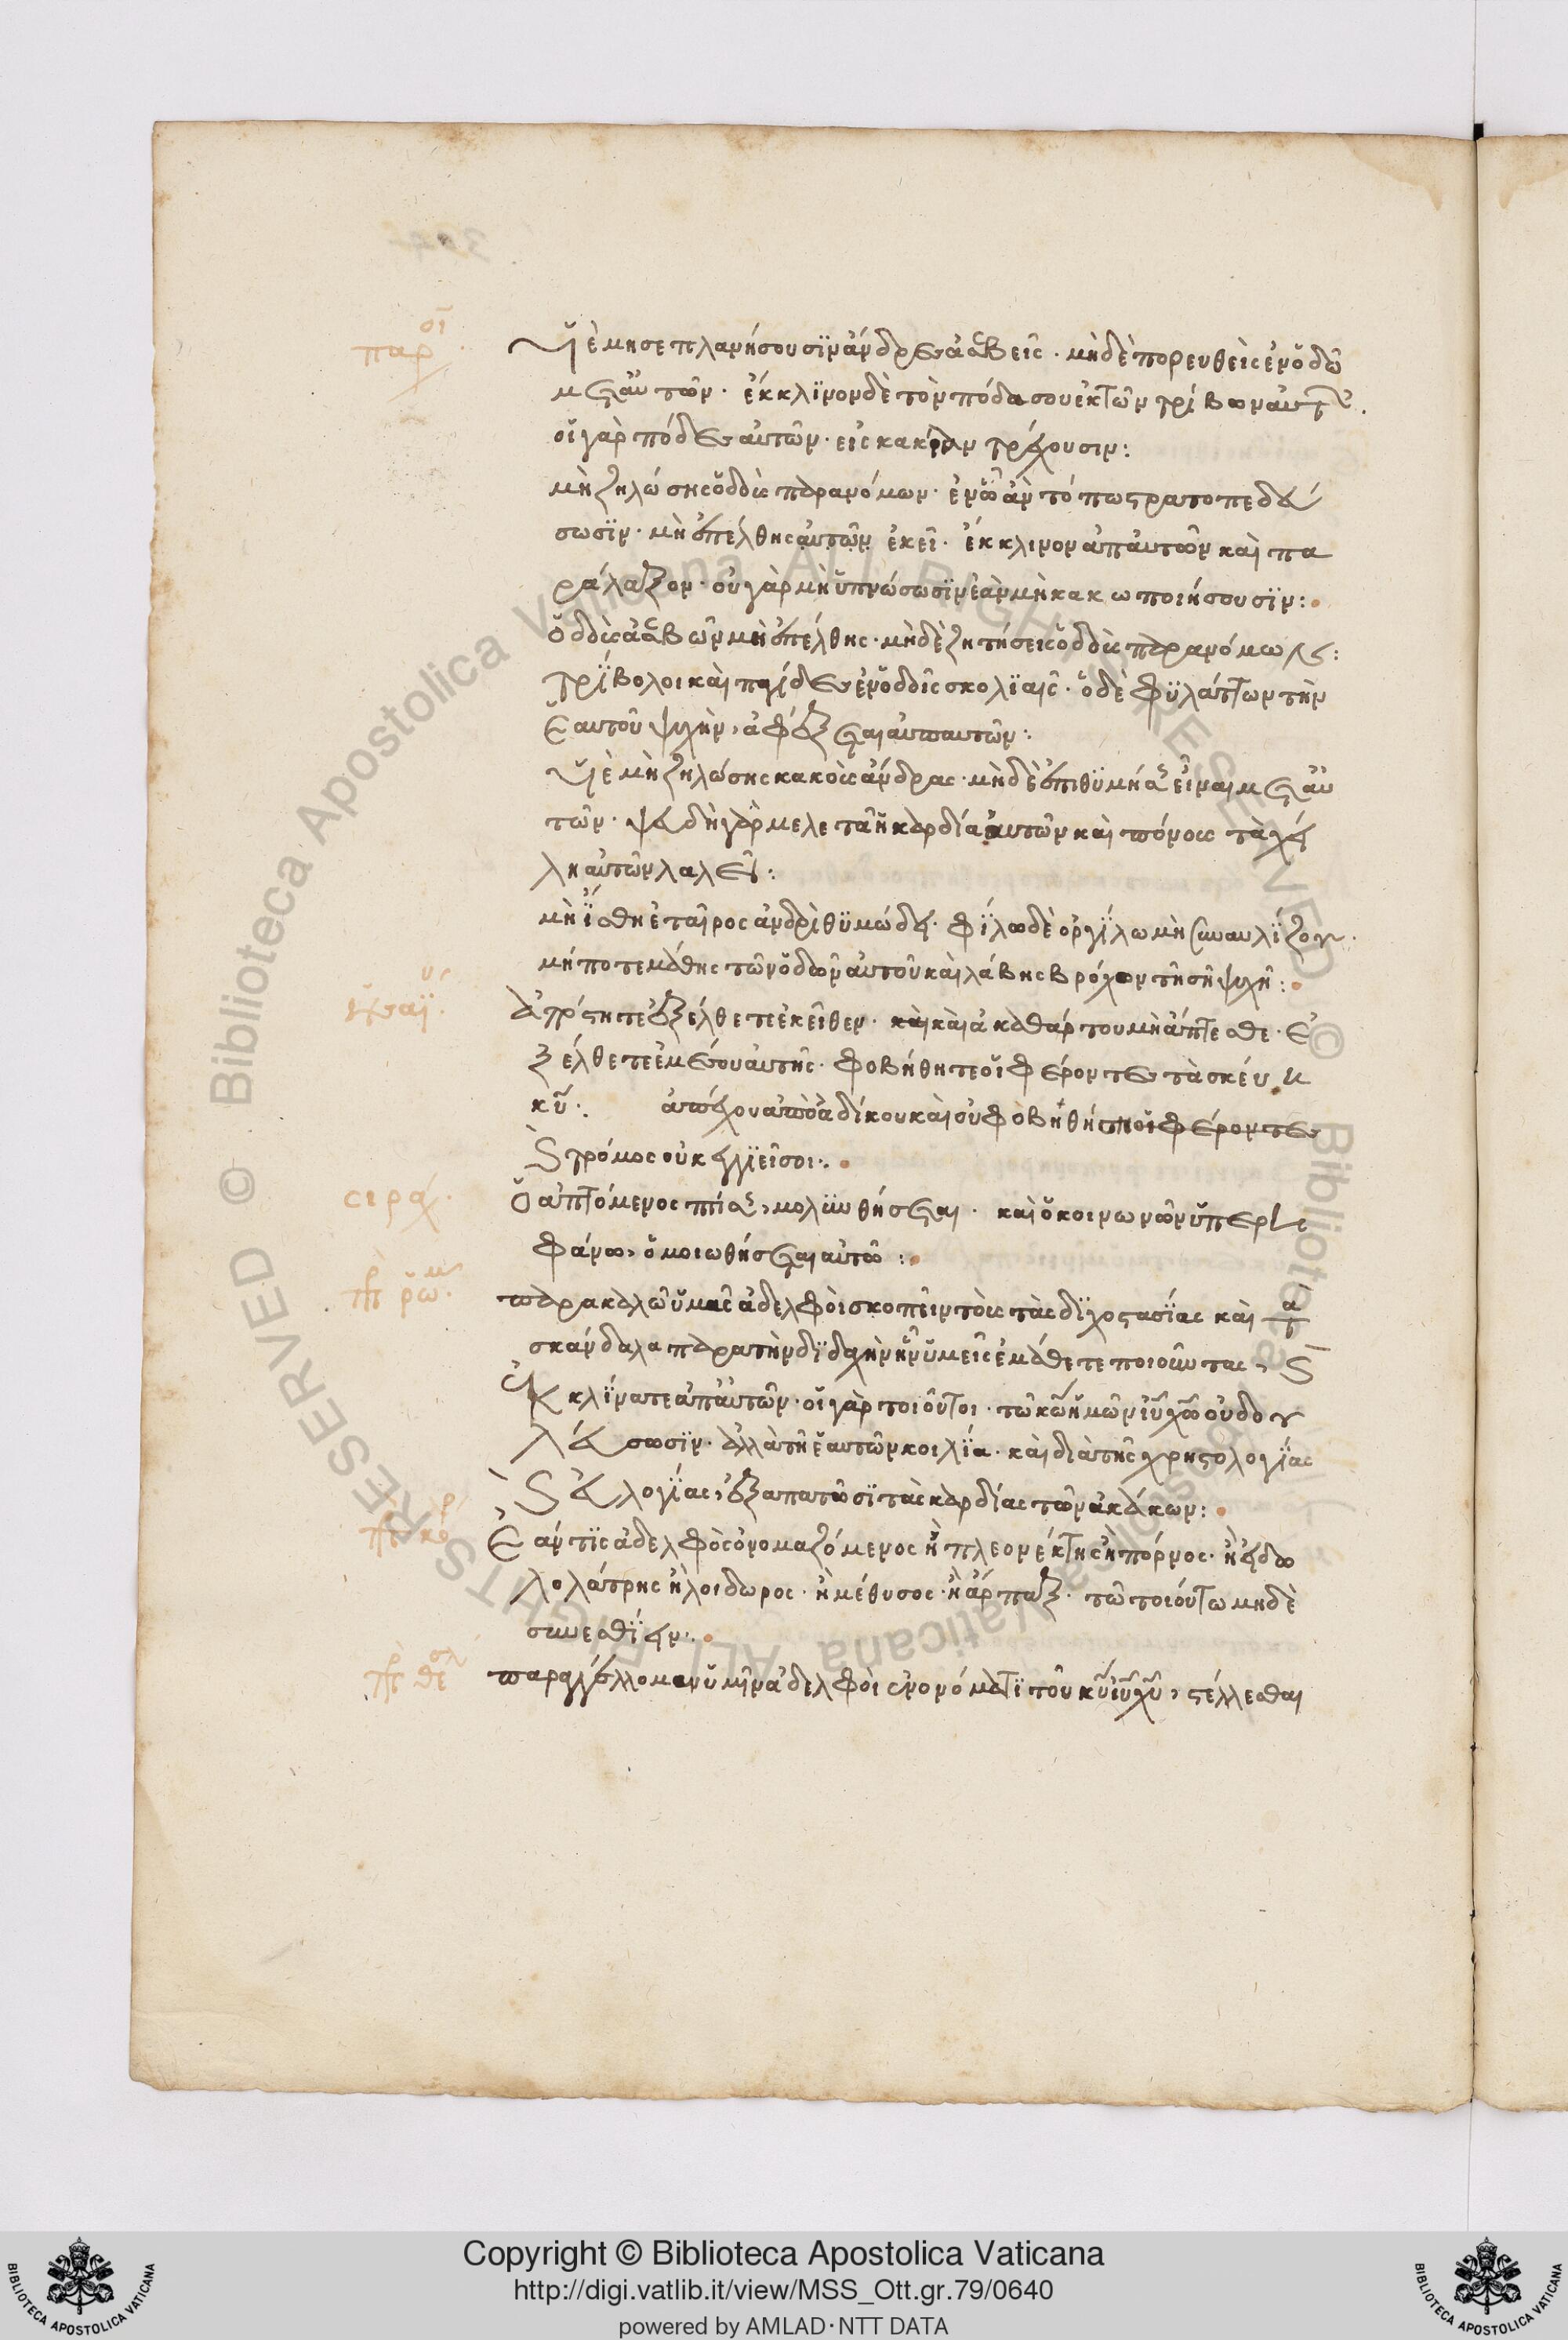 παροι
Υἱὲ μή σε πλανήσουσϊν ἄνδρες ἀσεβεῖς· μὴδὲ πορευθεὶς ἐν ὁδῶ
μετ' αὐτῶν· ἔκκλϊνον δὲ τὸν πόδα σου ἐκ τῶν τρίβων αὐτῶν.
οἱ γὰρ πόδες αὐτῶν· εἰς κακίαν τρέχουσιν:
μὴ ζηλώσης ὁδοὺς παρανόμων· ἐν ὧ ἂν τόπω στρατοπεδεύ
σωσϊν· μὴ ἐπέλθης αὐτῶν ἐκεῖ· ἔκκλινον ἀπ' αὐτῶν καὶ πα
ράλαξον· οὐ γὰρ μὴ ὑπνώσωσϊν ἐὰν μὴ κακωποιήσουσϊν:
ὁδοὺς ἀσεβῶν μὴ ἐπέλθης· μὴδὲ ζητήσεις ὁδοὺς παρανόμων:
τρίβολοι καὶ παγίδες ἐν ὁδοῖς σκολϊαῖς· ὁ δὲ φϋλάττων τὴν
ἑαυτοῦ ψυχὴν, ἀφέξεται ἀπ' αυτῶν:
Υἱὲ μὴ ζηλώσης κακοὺς ἄνδρας· μὴδὲ ἐπιθϋμήσης εἶναι μετ' αὐ
τῶν· ψευδῆ γὰρ μελετᾶ ἡ καρδία αὐτῶν καὶ πόνους τὰ χεί
λη αὐτῶν λαλεῖ:
μὴ ἴσθη ἑταῖρος ἀνδρὶ θϋμώδει· φίλω δὲ ὀργίλω μὴ συναυλίζου·
μήποτε μάθης τῶν ὁδῶν αὐτοῦ καὶ λάβης βρόχον τῆ σῆ ψυχῆ:
ἡσαΐου
ἀπόστητε ἐξέλθετε ἐκεῖθεν· καὶ καὶ ἀκαθάρτου μὴ ἅπτεσθε· ἐ
ξέλθετε ἐμέσου αὐτῆς· φοβήθητε οἱ φέροντες τὰ σκέυη
κυ̅:. ἀπέχου ἀπὸ ἀδίκου καὶ οὐ φοβηθήση οἱ φέροντες
καὶ τρόμος οὐκ ἐγγιεῖ σοι:.
σιράχ·
Ὁ ἁπτόμενος πίσσης, μολυνθήσεται· καὶ ὁ κοινωνῶν ὑπερη
φάνω, ὁμοιωθήσεται αὐτῶ:
πρ ρωμ
παρακαλῶ ὑμᾶς ἀδελφοὶ σκοπεῖν τοὺς τὰς δϊχοστασΐας καὶ τὰ
σκάνδαλα παρα τὴν δϊδαχὴν ἣν ὑμεῖς ἐμάθετε ποιοῦντας, καὶ
ἐκκλΐνατε ἀπ' αὐτῶν· οἱ γὰρ τοιοῦτοι· τῶ κω̅ ἡμῶν ιυ̅ χω̅ οὐ δου
λεύσωσϊν· ἀλλὰ τῆ ἑαυτῶν κοιλΐα· καὶ διὰ τῆς χρηστολογΐας
καὶ εὐλογΐας, ἐξαπατῶσϊ τὰς καρδίας τῶν ἀκάκων:
πρ κορ
Ἐάν τϊς ἀδελφὸς ὀνομαζόμενος ἢ πλεονέκτης ἢ πόρνος· ἢ εἰδω
λολάτρης ἢ λοιδωρος· ἢ μέθυσος· ἢ ἅρπαξ· τῶ τοιούτω μηδὲ
συνεσθΐειν:.
πρ θεσλ
παραγγέλλομεν ὑμῖν ἀδελφοὶ ἐν ονόματϊ τοῦ κυ̅ ιυ̅ χυ̅, στέλλεσθαι
Copyright © Biblioteca Apostolica Vaticana
http://digi.vatlib.it/view/MSS_Ott.gr.79/0640
powered by AMLAD·NTT DATA